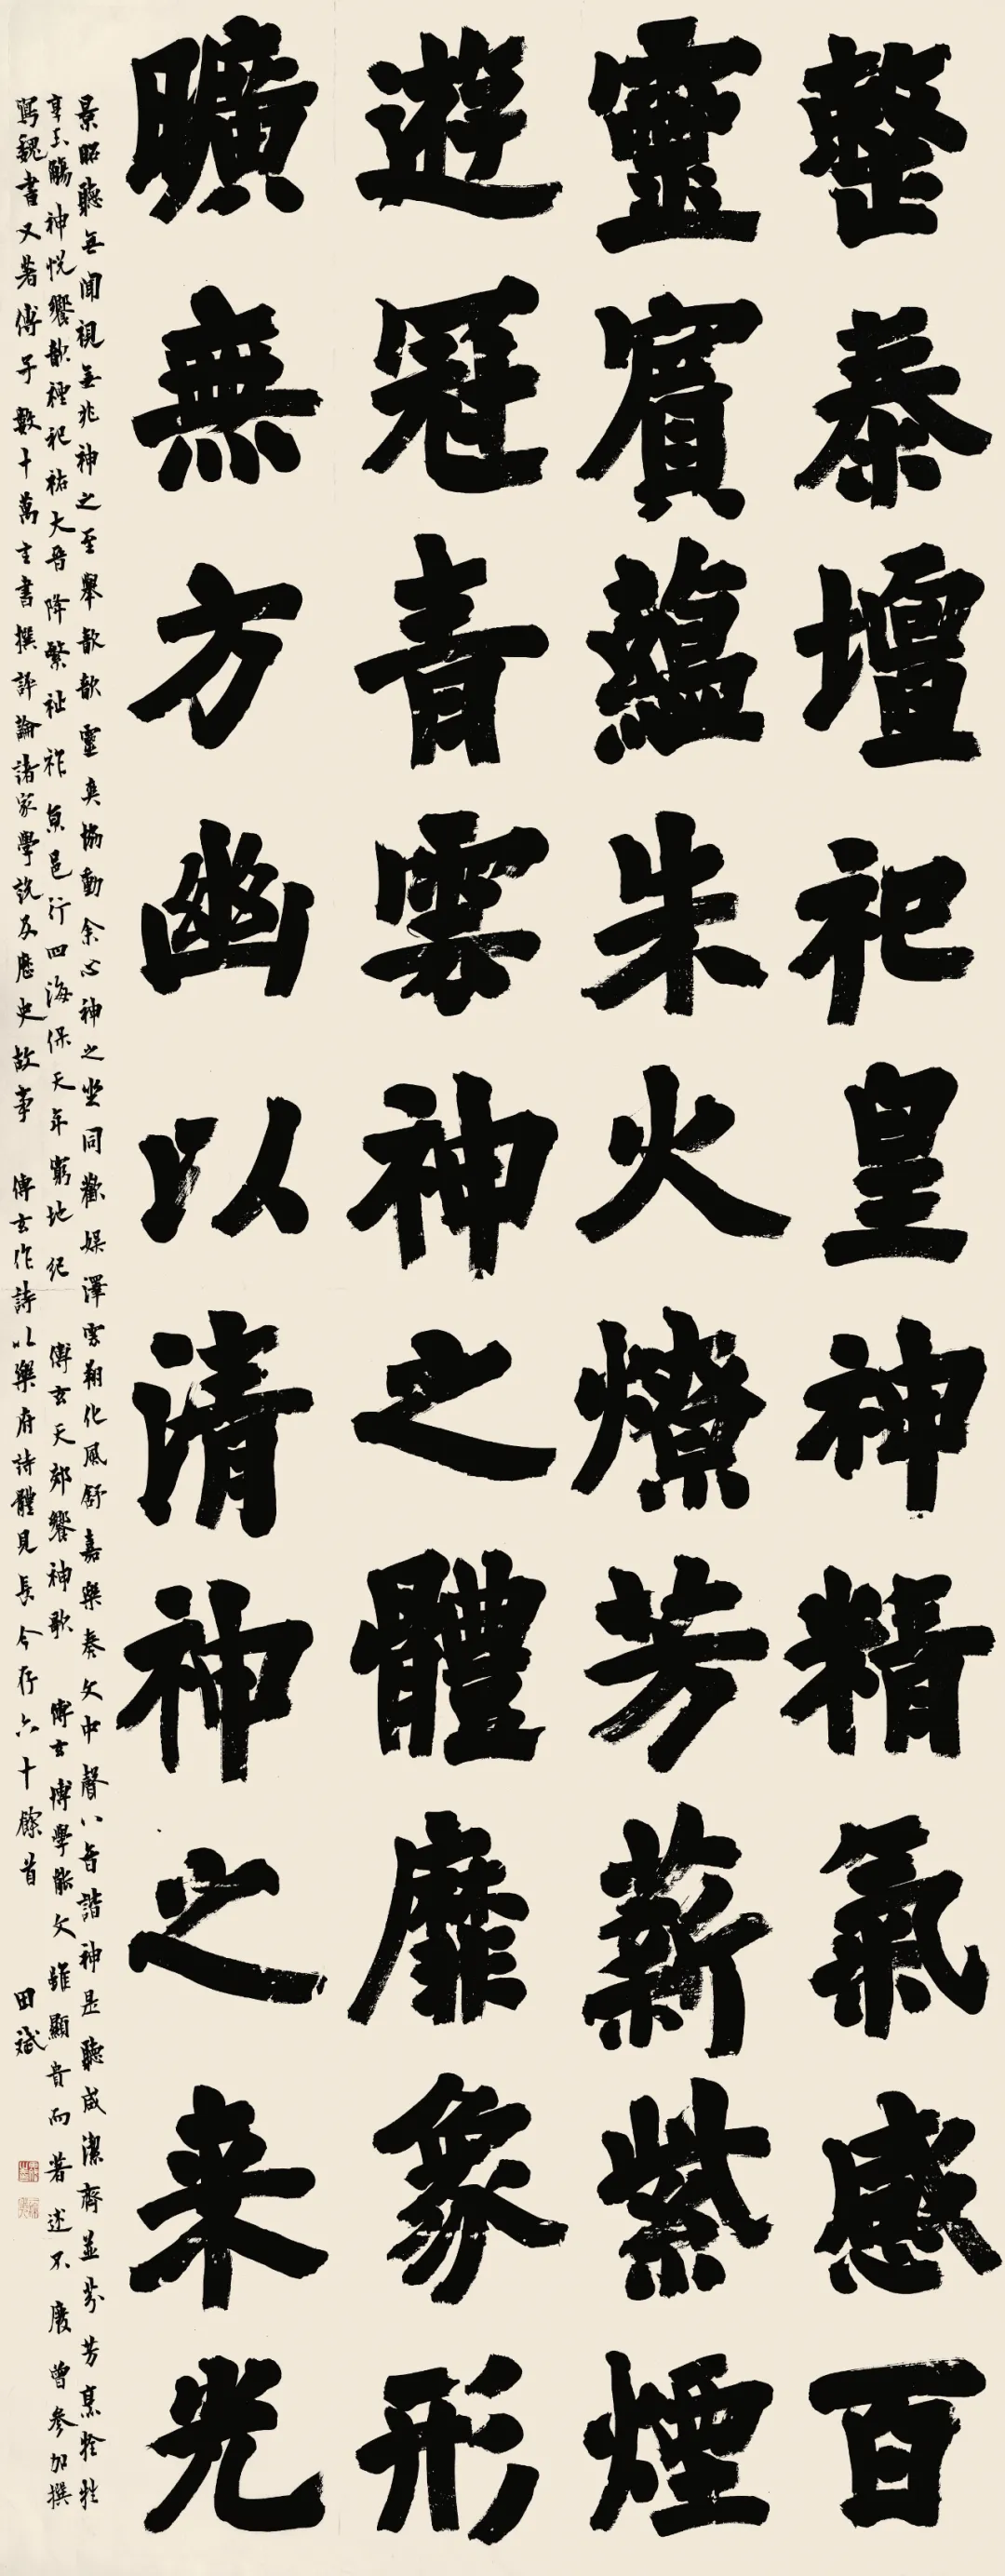 整泰壇祀皇神精氣感百
靈賓蘊朱火燎芳薪紫煙
遊冠青雲神之體靡象形
曠無方幽以清神之来光
景昭聽無聞視無兆神之至舉歆歆靈爽協動余心神之坐同歡娱澤雲翔化風舒嘉樂奏文中聲八音諧神是聽咸潔齊並芬芳烹牷牲
享玉觴神悦饗歆禋祀祐大晉降繁祉祚京邑行四海保天年窮地紀 傅玄天郊饗神歌 傅玄博學能文雖顯貴而著述不廢曾參加撰
寫魏書又著傅子數十萬言書撰評論諸家學説及歷史故事 傅玄作詩以樂府詩體見長今存六十餘首 田斌